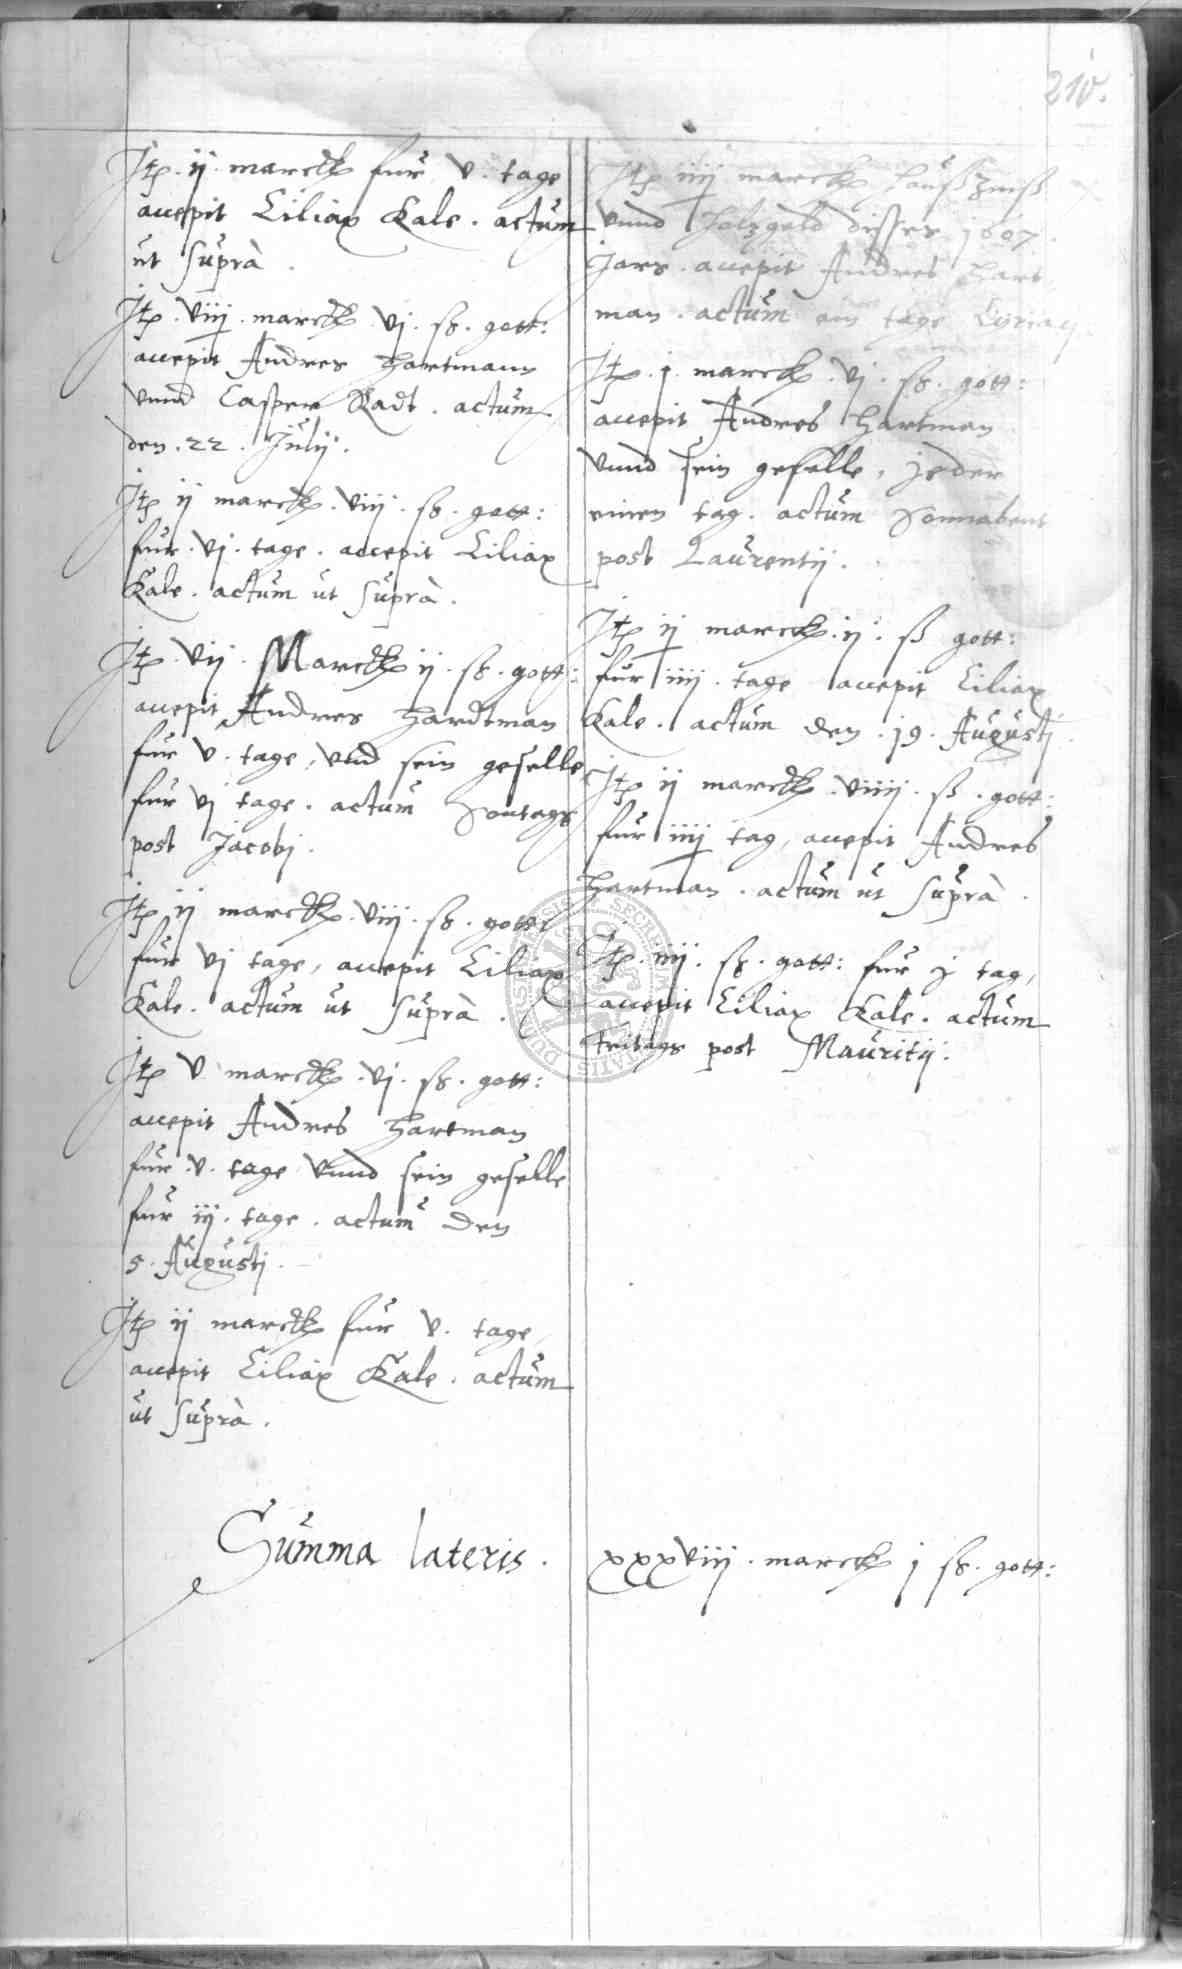 210.
Jtp. ij. marckh fur v. tage
accepit Ciliax Kale. actum
ut suprà.
Jtp. viij. marckh. vj. ß. gott:
accepit Andres Hartmann
vnnd Casper Radt. actum
den. 22. Julij.
Jtp ij marckh. viij. ß. gott:
fur. vj. tage. accepit Ciliax
Kale. actum ut suprà.
Jtp. vij. Marckh ij. ß. gott:
accepit Andres Hardtman
fur v. tage, vnd sein geselle
fur vj tage. actum Sontags
post Jacobj.
Jtp ij marckh. viij. ß. gott:
fur vj tage, accepit Ciliax
Kale. actum ut suprà.
Jtp v marckh. vj. ß. gott:
accepit Andres Hartman
fur. v. tage vnnd sein geselle
fur iij. tage. actum den
5. Augustj.
Jtp ij marckh fur v. tage,
accepit Ciliax Kale. actum
ut suprà.
Jtp iiij marckh haußzinß
vnnd holzgeld disses 1607.
Jars. accepit Andres Hart-
man. actum am tage Cyriacj.
Jtp. j. marckh. vj. ß. gott:
accepit Andres Hartman
vnnd sein geselle, jeder
einen tag. actum Sonnabent
post Laurentij.
Jtp ij marckh. ij. ß gott:
fur iiij. tage accepit Ciliax
Kale. actum den. 19. Augustj.
Jtp ij marckh. viiij. ß. gott:
fur iiij tag, accepit Andres
Hartman. actum ut suprà.
Jtp. iiij. ß. gott: fur j tag,
accepit Ciliax Kale. actum
freitags post Mauritij.
Summa lateris. xxxviij. marckh j ß. gott: